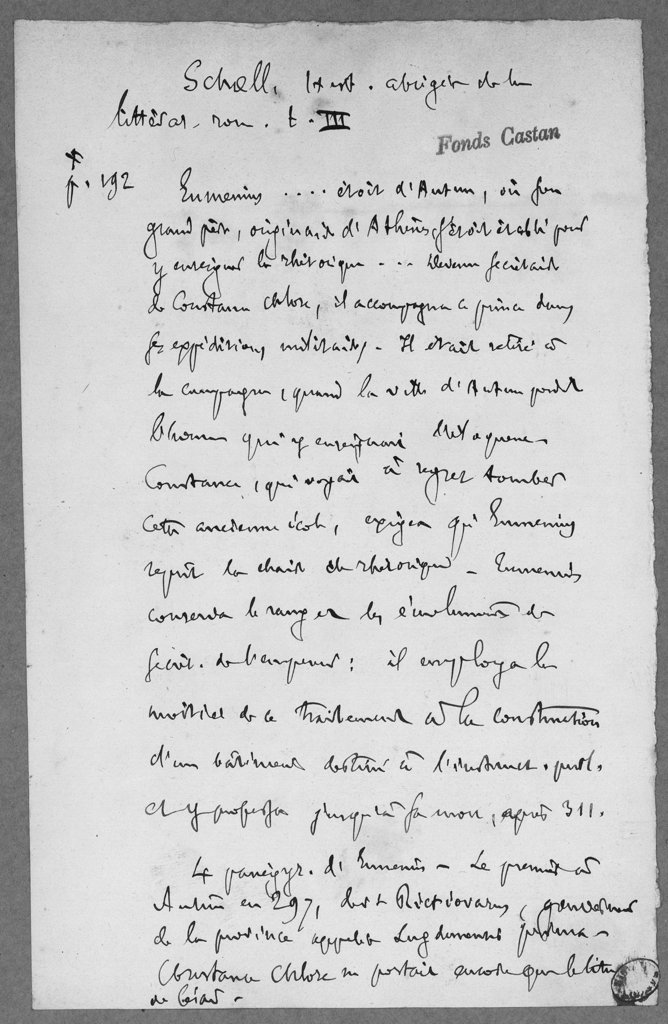 Schœll, Hist. abrégée de la
littérat. rom. t. III
Fonds Castan
p. 192
Eumenius .... étoit d'Autun, où son
grand père, originaire d'Athènes, s'étoit établi pour
y enseigner la rhétorique ... Devenu secrétaire
de Constance Chlore, il accompagna ce prince dans
ses expéditions militaires. Il était retiré à
la campagne, quand la ville d'Autun perdit
l'homme qui y enseignait l'éloquence
Constance, qui voyait à regret tomber
cette ancienne école, exigea qu'Eumenius
reprît la chaire de rhétorique – Eumenius
conserva le rang et les émoluments de
secrét. de l'empereur : il employa la
moitié de ce traitement à la construction
d'un bâtiment destiné à l'instruct. publ.
et y professa jusqu'à sa mort, après 311.
4 panégyr. d'Eumenius – Le premier à
Autun en 297, devt Rictiovarus, gouverneur
de la province appelée Lugdunensis prima –
Constance Chlore ne portait encore que le titre
de César –